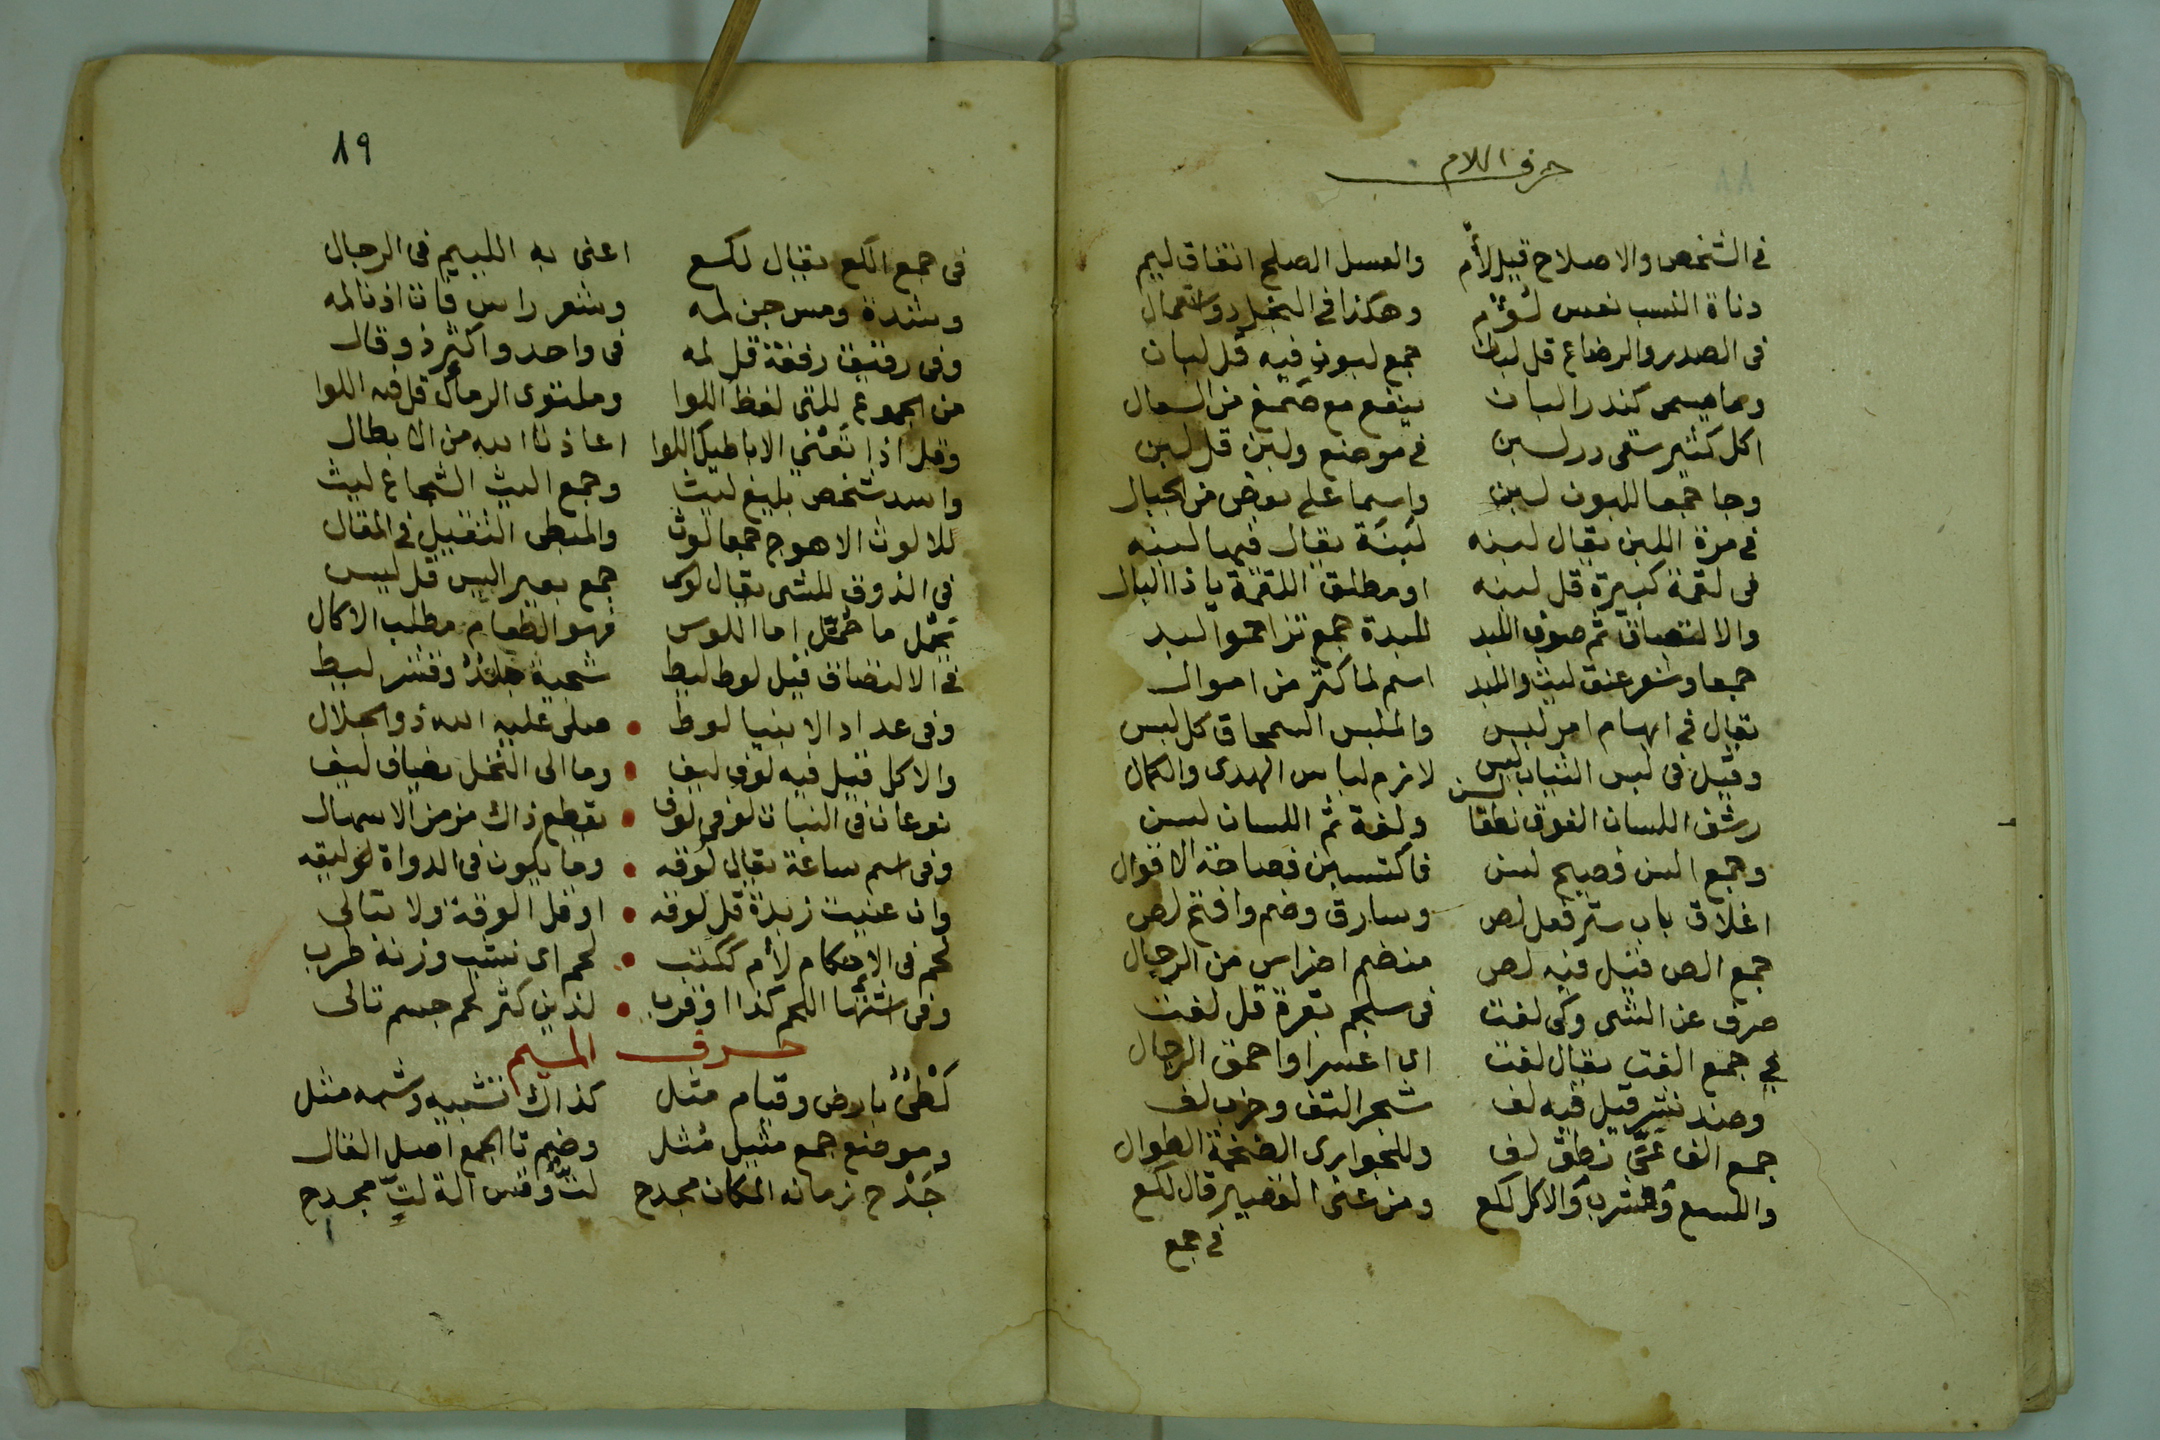 حرف اللام
٨٨
في الشخص والاصلاح قيل لأم والعسل الصلح اتفاق ليم
دناة النسب نفس لؤم وهكذا في البخل ذو استعمال
في الصدر والرضاع قل لبان جمع لبون فيه قل لبان
وما يسمى كندرا لبان ينفع مع صمغ من السعال
اكل كثير سقي در لبن في موضع ولبن قل لبن
وجا جمعا للبون لبن واسما على بعض من الجبال
في مرة اللبن يقال لبنه لَبِنَة يقال فيها لبنه
في لقمة كبيرة قل لبنه او مطلق اللقمة يا ذا البال
والالتصاق ثم صوف اللبد للبدة جمع تزاحموا لبد
جمعا وشعر عنق ليث واللبد اسم لما كثر من اموال
يقال في ابهام امر لبس والملبس السمحاق كل لبس
وقيل في لبس الثياب لبس لازم لباس الهدى والكمال
رشف اللسان الفوق نطقا لسن ولغة ثم اللسان لسن
وجمع السن فصيح لسن فاكتسبن فصاحة الاقوال
اغلاق باب ستر فعل لص وسارق وضم وافتح لص
جمع الص قيل فيه لص منضم اضراس من الرجال
صرف عن الشي وكي لفت في سلجم بقرة قل لفت
في جمع الفت يقال لفت اي اعسرا واحمق الرجال
وضد نشر قيل فيه لف شجر التف وحزب لف
جمع الف عيّ نطق لف وللجواري الضخمة الطوال
واللسع والشرب والاكل لكع ومن عنى القصير قال لكع
في جمع
٨٩
في جمع الكع يقال لكع اعني به اللئيم في الرجال
وشدة ومس جن لمه وشعر راس فات اذنا لمه
وفي رفيق رفقة قل لمه في واحد واكثر ذو قال
من الجموع للتي لفظ اللوا وملتوى الرمال قل فيه اللوا
وقل اذا تَعْني الاباطيل اللوا اعاذنا الله من الابطال
واسد شخص بليغ ليث وجمع اليث الشجاع ليث
للالوث الاهوج جمعا لوث والمبطي الثقيل في المقال
في الذوق للشي يقال لوس جمع بعير اليس قل ليس
تحمّل ما حمّل اما اللوس فهو الطعام مطلب الاكال
في الالتصاق قيل لوط ليط شحية جلد وقشر ليط
وفي عداد الانبيا لوط صلى عليه الله ذو الجلال
والاكل قيل فيه لوف ليف وما الى النخل يضاف ليف
نوعان في النبات لوف لوف يقطع ذاك مزمن الاسهال
وفي اسم ساعة يقال لوقه وما يكون في الدواة ليقه
وان عنيت زبدة قل لوقه او قل الوقة ولا تبالي
لحم في الاحكام لأم ككتب لحم اي نشب وزنة طرب
وفي اشتها اللحم كذا او قرب لذين كثر لحم جسم تالي
حرف الميم
لَطْئٌ بارض وقيام مثل كذاك تشبيه وشبه مثل
وموضع جمع مثيل مُثل وضم تا الجمع اصل الفال
جَدْح زمانه المكان مجدح لتٌّ وقس الة لتّ مجدح